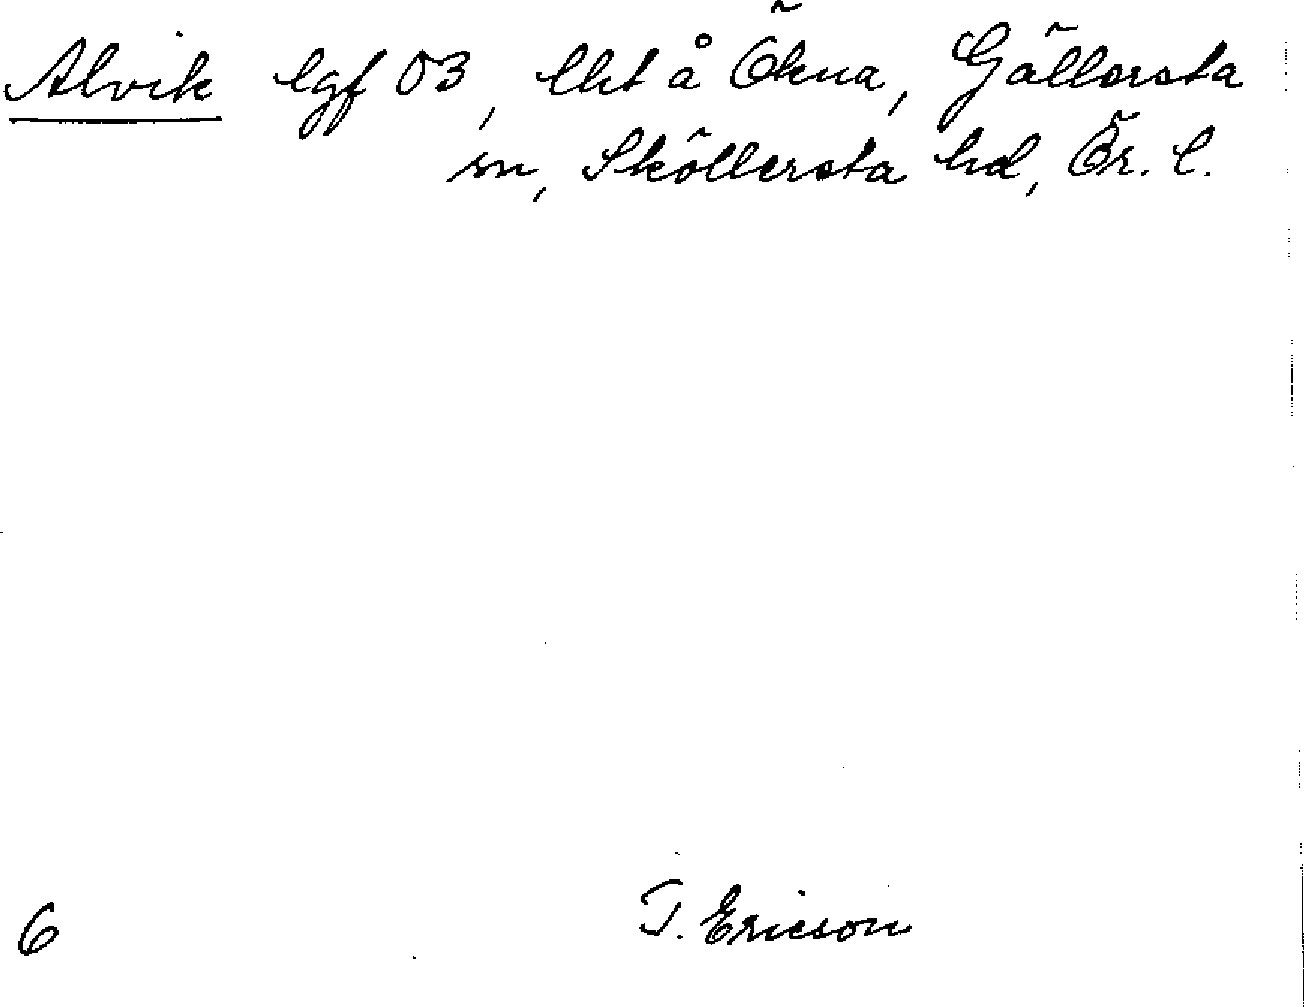 Alvik lgf 03, lht å Ökna, Gällersta
sn, Sköllersta hd, Ör. l.
6
T. Ericson